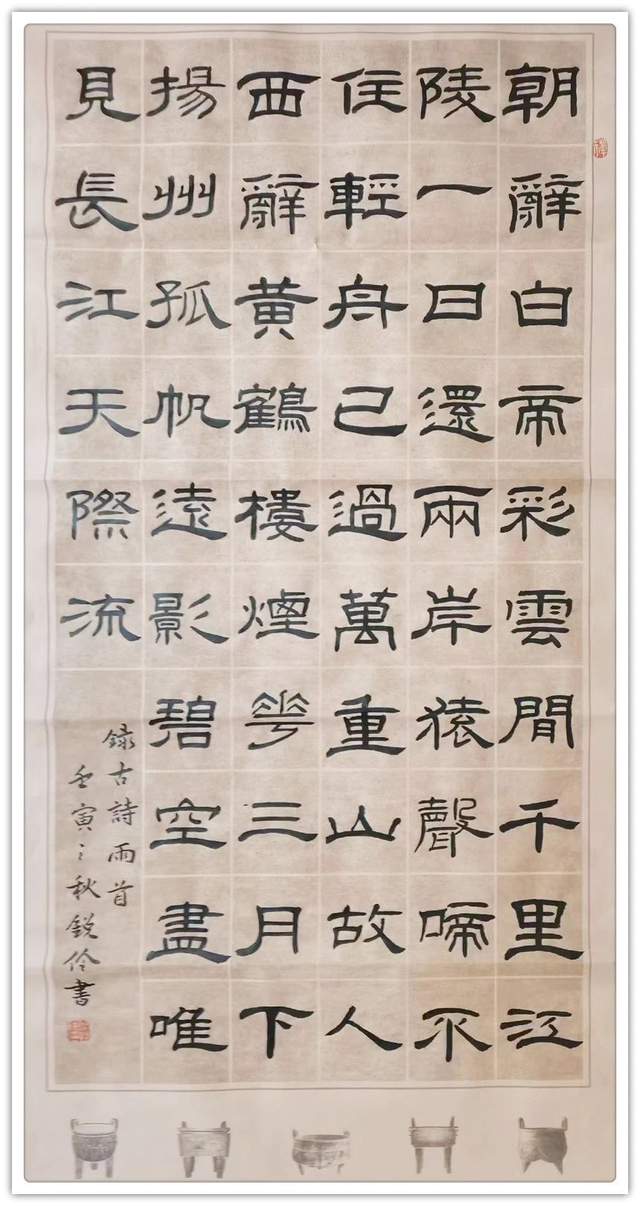 朝辭白帝彩雲間千里江
陵一日還兩岸猿聲啼不
住輕舟已過萬重山故人
西辭黃鶴樓煙花三月下
揚州孤帆遠影碧空盡唯
見長江天際流
錄古詩兩首
壬寅之秋銳伶書